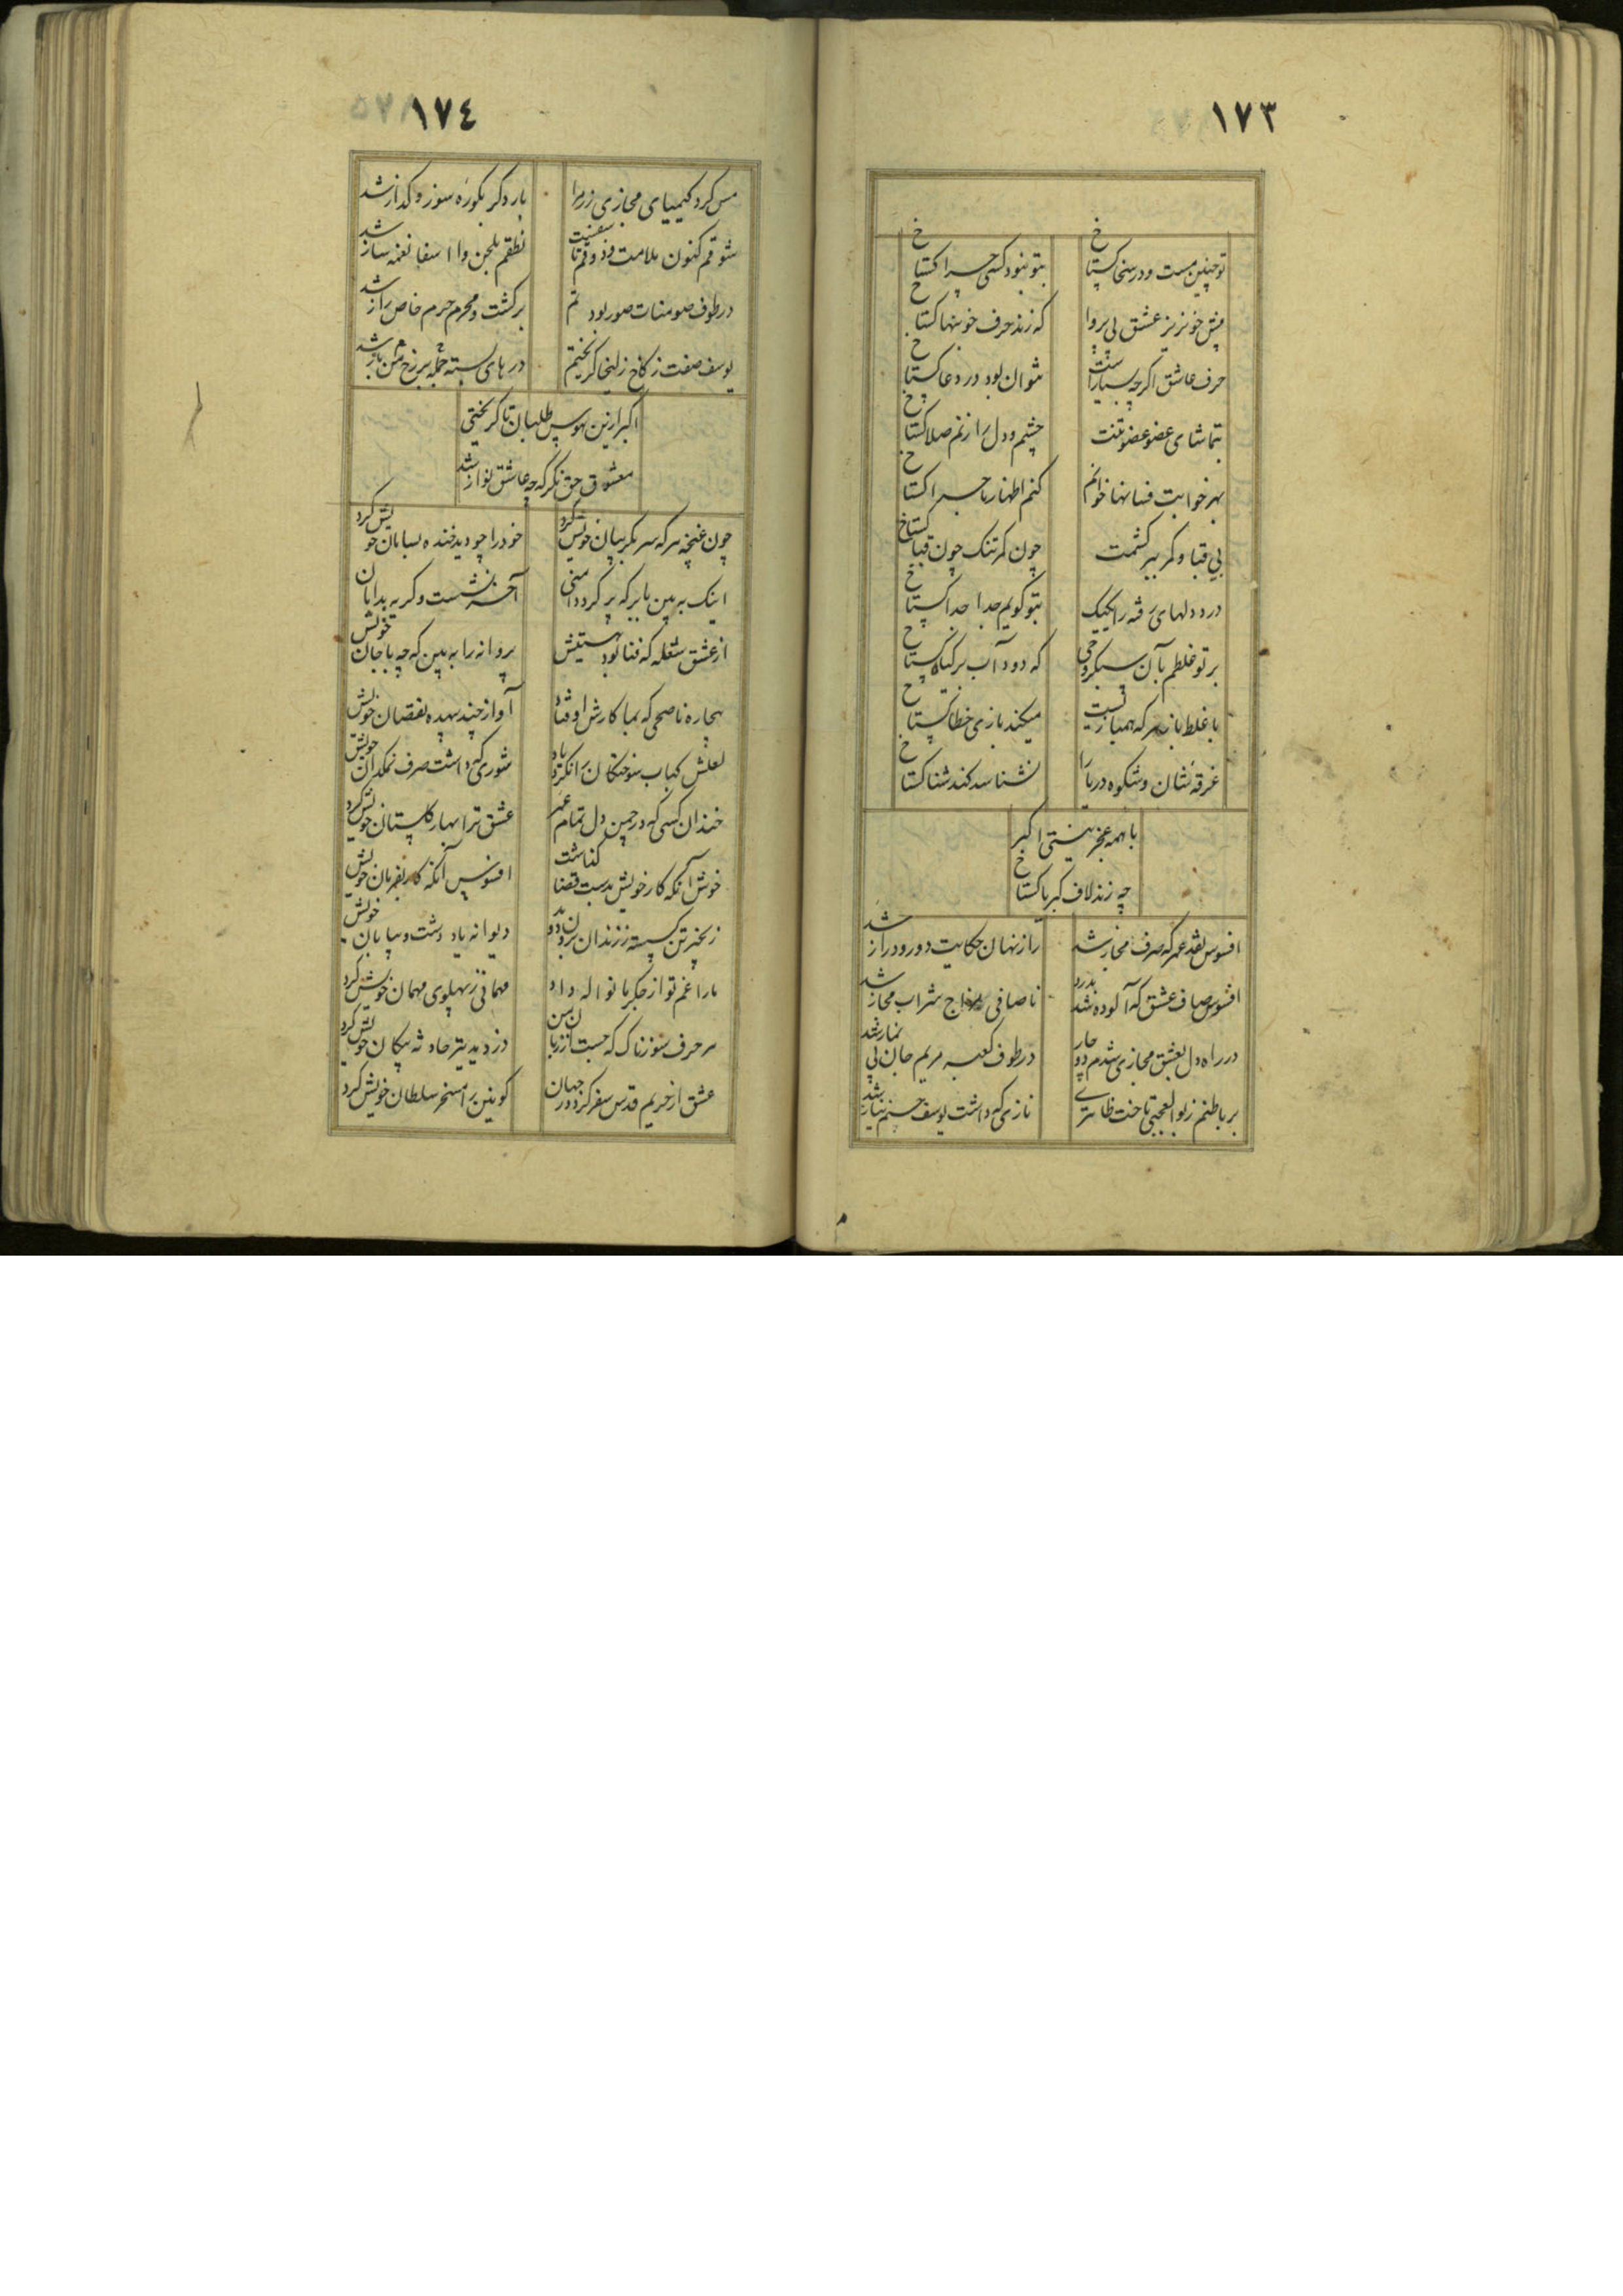 ١٧٣
تو چنین مست و در سخا گستاخ
بتو نبود کسی چرا گستاخ
پیش خونریز عشق بی پروا
که زند حرف خونبها گستاخ
حرف عاشق اگرچه بسیار است
نتوان بود در دعا گستاخ
بتماشای عضو عضو تنت
چشم و دل را زنم صلا گستاخ
بهر خوابت فسانها خوانم
کنم اظهار ماجرا گستاخ
بی قبا و کمر ببر کشمت
چون کمر تنک چون قبا گستاخ
درد دلهای رفته را یکیک
بتو گویم جدا جدا گستاخ
بر تو غلطم بآن سبکروحی
که دود آب بر گیاه گستاخ
با غلط باز هرکه همبازیست
میکند بازی خطا گستاخ
غرقه نشان و شکوه دریا را
نشناسد کند شنا گستاخ
با همه عجز نیستی اکبر
چه زند لاف کبریا گستاخ
افسوس نقد عمر که صرف مجاز شد
راز نهان حکایت دور و دراز شد
افسوس صاف عشق که آلوده شد بدرد
ناصافی مزاج شراب مجاز شد
در راه دل بعشق مجازی شدم دوچار
در طوف کعبه مریم جان بی نماز شد
بر باطنم ز بوالعجبی تاخت ظاهری
نازی که داشت یوسف حسنم نیاز شد
١٧٤
مس کرد کیمیای مجازی زر مرا
بار دگر بکوره سوز و گداز شد
شوقم کنون ملامت ذوقم
نطقم بلحن وا اسفا نغمه ساز شد
در طوف سومنات صور بود
برگشت و محرم حرم خاص راز شد
یوسف صفت ز کاخ زلیخا گریختم
درهای بسته جمله برخ من باز شد
اکبر ازین هوس طلبان تا گریختی
معشوق حق نگر که چه عاشق نواز شد
چون غنچه هر که سر بگریبان خویش کرد
خود را چو دید خنده بسامان خویش کرد
اینک ببین بابر که پر کرد دامنی
آخر نشست و گریه بدامان
از عشق شعله که فنا بود هستیش
پروانه را به بین که چه با جان خویش
بیچاره ناصحی که بما کارش اوفتاد
آواز چند بیهده نقصان خویش
لعلش کباب سوختگان را نکرد یاد
شوری که داشت صرف نمکدان خویش
خندان کسی که در چمن دل تمام عمر
عشق ترا بهار گلستان خویش کرد
خوش آنکه کار خویش بدست قضا گذاشت
افسوس آنکه کار بفرمان خویش
زنجیر تن گسسته ز زندان برون دوید
دیوانه یاد دشت و بیابان خویش
ما را غم تو از جگر ما نواله داد
مهمانی ز پهلوی مهمان خویش کرد
هر حرف سوزناک که جست از زبان من
دزدید تیر حادثه پیکان خویش کرد
عشق از حریم قدس سفر کرد در جهان
کونین را مسخر سلطان خویش کرد